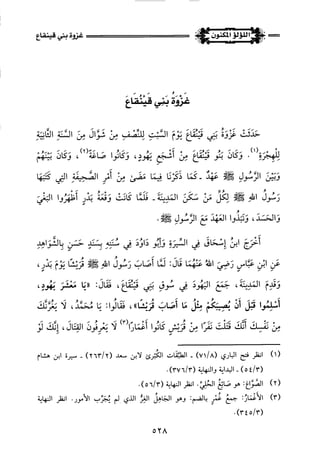 اللؤلؤ المكنون
غزوة بني قينقاع
غَزْوَةُ بَنِي قَيْنُقَاعَ
حَدَثَتْ غَزْوَةُ بَنِي قَيْنُقَاعَ يَوْمَ السَّبْتِ لِلنِّصْفِ مِنْ شَوَّالَ مِنَ السَّنَةِ الثَّانِيَةِ
لِلْهِجْرَةِ(١)، وَكَانَ بَنُو قَيْنُقَاعَ مِنْ أَشْجَعِ يَهُودٍ، وَكَانُوا صَاغَةً(٢)، وَكَانَ بَيْنَهُمْ
وَبَيْنَ الرَّسُولِ ﷺ عَهْدٌ - كَمَا ذَكَرْنَا فِيمَا مَضَى مِنْ أَمْرِ الصَّحِيفَةِ الَّتِي كَتَبَهَا
رَسُولُ اللهِ ﷺ لِكُلِّ مَنْ سَكَنَ المَدِينَةَ - فَلَمَّا كَانَتْ وَقْعَةُ بَدْرٍ أَظْهَرُوا البَغْيَ
وَالحَسَدَ، وَنَبَذُوا العَهْدَ مَعَ الرَّسُولِ ﷺ.
أَخْرَجَ ابْنُ إِسْحَاقَ فِي السِّيرَةِ وَأَبُو دَاوُدَ فِي سُنَنِهِ بِسَنَدٍ حَسَنٍ بِالشَّوَاهِدِ
عَنِ ابْنِ عَبَّاسٍ رَضِيَ اللهُ عَنْهُمَا قَالَ: لَمَّا أَصَابَ رَسُولُ اللهِ ﷺ قُرَيْشًا يَوْمَ بَدْرٍ،
وَقَدِمَ المَدِينَةَ، جَمَعَ اليَهُودَ فِي سُوقِ بَنِي قَيْنُقَاعَ، فَقَالَ: «يَا مَعْشَرَ يَهُودٍ،
أَسْلِمُوا قَبْلَ أَنْ يُصِيبَكُمْ مِثْلُ مَا أَصَابَ قُرَيْشًا»، فَقَالُوا: يَا مُحَمَّدُ، لَا يَغُرَّنَّكَ
مِنْ نَفْسِكَ أَنَّكَ قَتَلْتَ نَفَرًا مِنْ قُرَيْشٍ كَانُوا أَغْمَارًا(٣) لَا يَعْرِفُونَ القِتَالَ، إِنَّكَ لَوْ
(١) انظر فتح الباري (٧١/٨) - الطبقات الكُبْرى لابن سعد (٢٦٣/٢) - سيرة ابن هشام
(٥٤/٣) - البداية والنهاية (٣٧٦/٣).
(٢) الصَّوَّاغ: هو صَائِغُ الحُلِيِّ. انظر النهاية (٥٦/٣).
(٣) الأَغْمَارُ: جمع غُمْرٍ بالضم: وهو الجَاهِلُ الغِرُّ الذي لم يُجَرِّب الأمور. انظر النهاية
(٣٤٥/٣).
٥٢٨